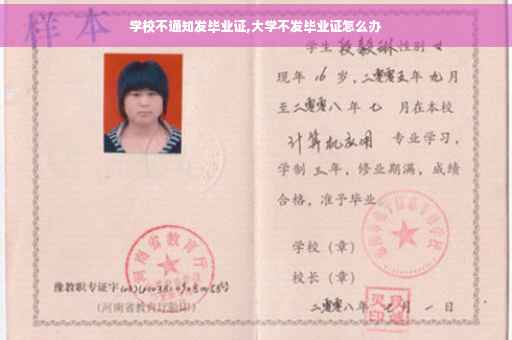 学校不通知发毕业证,大学不发毕业证怎么办
样本
学生 段毅琳 性别 女
现年 16 岁，二零零五年 九 月
至二零零八年 七 月在本校
计算机应用 专业学习，
学制 三 年，修业期满，成绩
合格，准予毕业
学校（章）
校长（章）
二零零八年 七 月 一 日
河南省教育厅
豫教职专证字
（河南省教育厅验印）